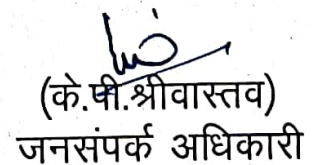 (के.पी.श्रीवास्तव)
जनसंपर्क अधिकारी